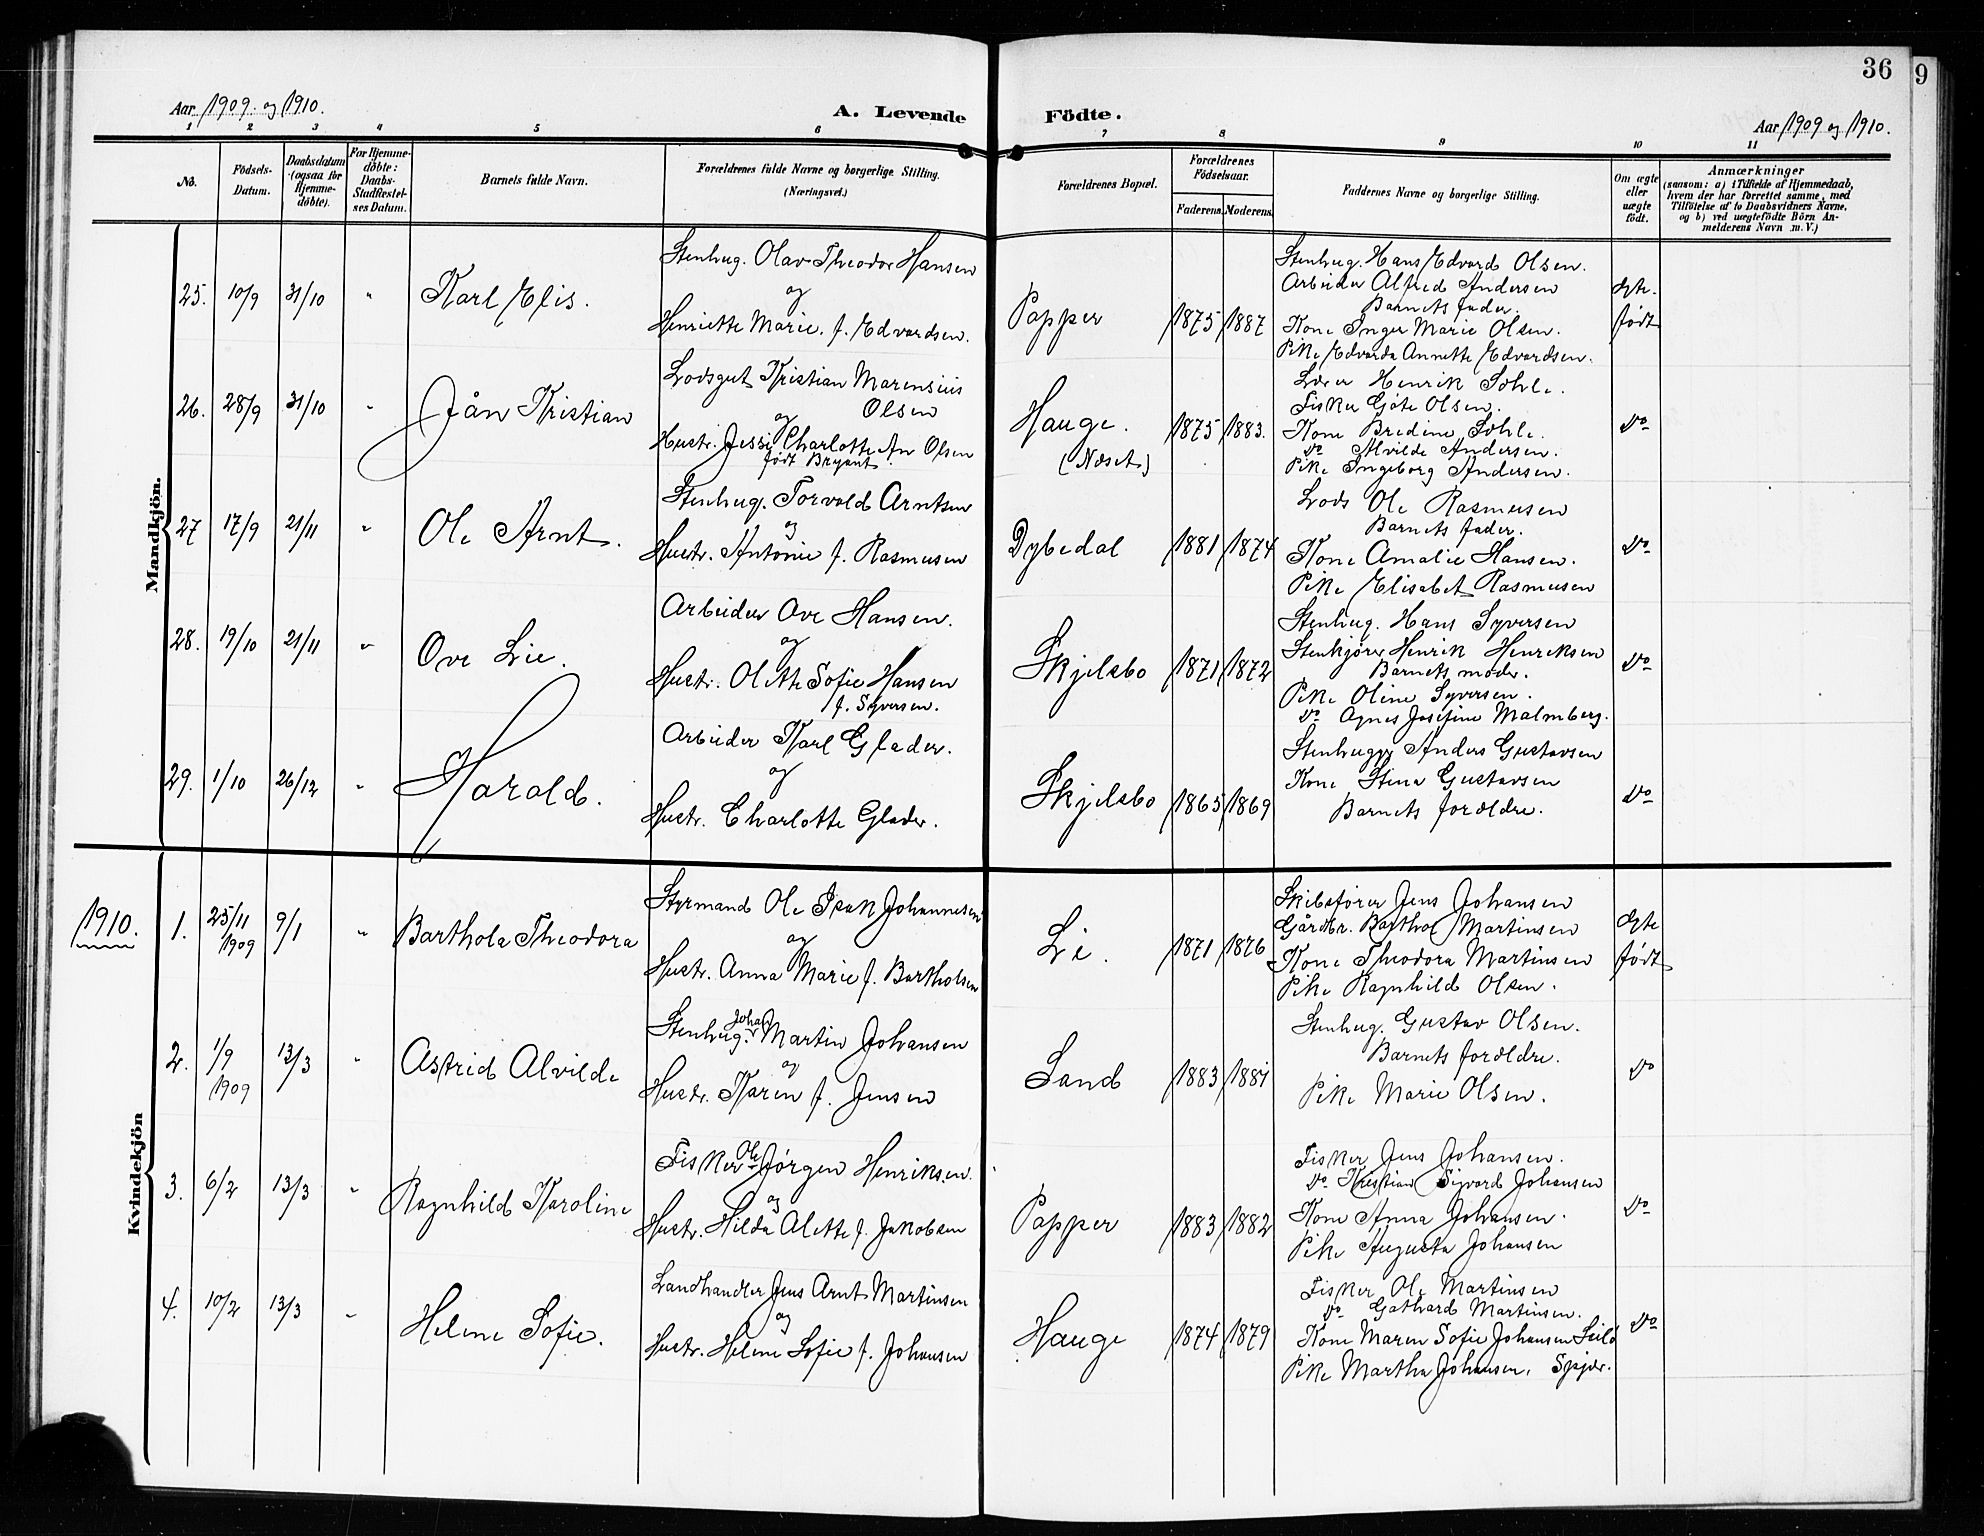 36
9
Aar 1909 og 1910.
A. Levende Födte.
Aar 1909 og 1910.
1 2 3 4 5 6 7 8 9 10 11
No.
Födsels-Datum.
Daabsdatum (ogsaa for Hjemmedöbte).
For Hjemmedöbte: Daabs-Stadfæstelses Datum.
Barnets fulde Navn.
Forældrenes fulde Navne og borgerlige Stilling.
(Næringsvei.)
Forældrenes Bopæl.
Forældrenes Födselsaar.
Faderens. Moderens.
Faddernes Navne og borgerlige Stilling.
Om ægte eller uægte födt.
Anmærkninger
(saasom: a) i Tilfælde af Hjemmedaab,
hvem der har forrettet samme, med
Tilföielse af to Daabsvidners Navne,
og b) ved uægtefödte Börn Anmelderens Navn m. V.)
Mandkjön.
25. 10/9 31/10 " Karl Elis.
Stenhug. Olav Theodor Hansen
og
Henriette Marie. f. Edvardsen.
Popper 1875 1887
Stenhug. Hans Edvard Olsen.
Arbeider Alfred Andersen
Barnets fader.
Kone Inger Marie Olsen.
Pike Edvarda Annette Edvardsen.
Egte. født
26. 28/9 31/10 " Jån Kristian
Lodsgut Kristian Marensius
Olsen
og
Hustr. Jessi Charlotte An Olsen
født Bryant.
Hauge.
(Næset)
1875 1883.
Lærer Henrik Sohle.
Fisker Gøte Olsen.
Kone Bredine Sohle.
do Alvilde Andersen.
Pike Ingeborg Andersen.
do
27 17/9 21/11 " Ole Arnt.
Stenhug. Torvald Arntsen
og
Hustr. Antonie f. Rasmusen
Dybedal 1881 1874
Lods Ole Rasmusen
Barnets fader.
Kone Amalie Hansen.
Pike Elisabet Rasmusen
do
28. 19/10 21/11 " Ove Lie.
Arbeider Ove Hansen.
og
Hustr. Olette Sofie Hansen
f. Syversen.
Skjelsbo 1871 1872
Stenhug. Hans Syversen
Stenkjører Henrik Henriksen
Barnets moder.
Pike Oline Syversen.
do Agnes Josefine Malmberg.
do
29. 1/10 26/12 " Harald.
Arbeider Karl Glader.
og
Hustr. Charlotte Glader.
Skjelsbo 1865 1869
Stenhugger Anders Gustavsen
Kone Stina Gustavsen
Barnets forældre.
do
1910.
Kvindekjön
1. 25/11 1909 9/1 " Barthola Theodora
Styrmand Ole Isak Johannesen
og
Hustr. Anna Marie f. Bartholsen
Li. 1871 1876
Skibsfører Jens Johansen
Gårdbr. Barthol Martinsen
Kone Theodora Martinsen
Pike Ragnhild Olsen.
Egte født
2. 1/9 1909 13/3 " Astrid Alvilde
Stenhug. Johan Martin Johansen
og
Hustr. Karen f. Jensen
Sand 1883 1881
Stenhug. Gustav Olsen.
Barnets forældre.
Pike Marie Olsen.
do
3. 6/2 13/3 " Ragnhild Karoline
Fisker Ole Jørgen Henriksen.
og
Hustr. Hilda Alette f. Jakobsen
Popper 1883 1882
Fisker Jens Johansen.
do Kristian Sigvard Johansen
Kone Anna Johansen.
Pike Augusta Johansen
do
4. 10/2 13/3 " Helene Sofie.
Landhandler Jens Arnt Martinsen
og
Hustr. Helene Sofie f. Johansen
Hauge 1874 1879
Fisker Ole Martinsen
do Gathard Martinsen.
Kone Maren Sofie Johansen
Pike Martha Johansen, Spjær.
do